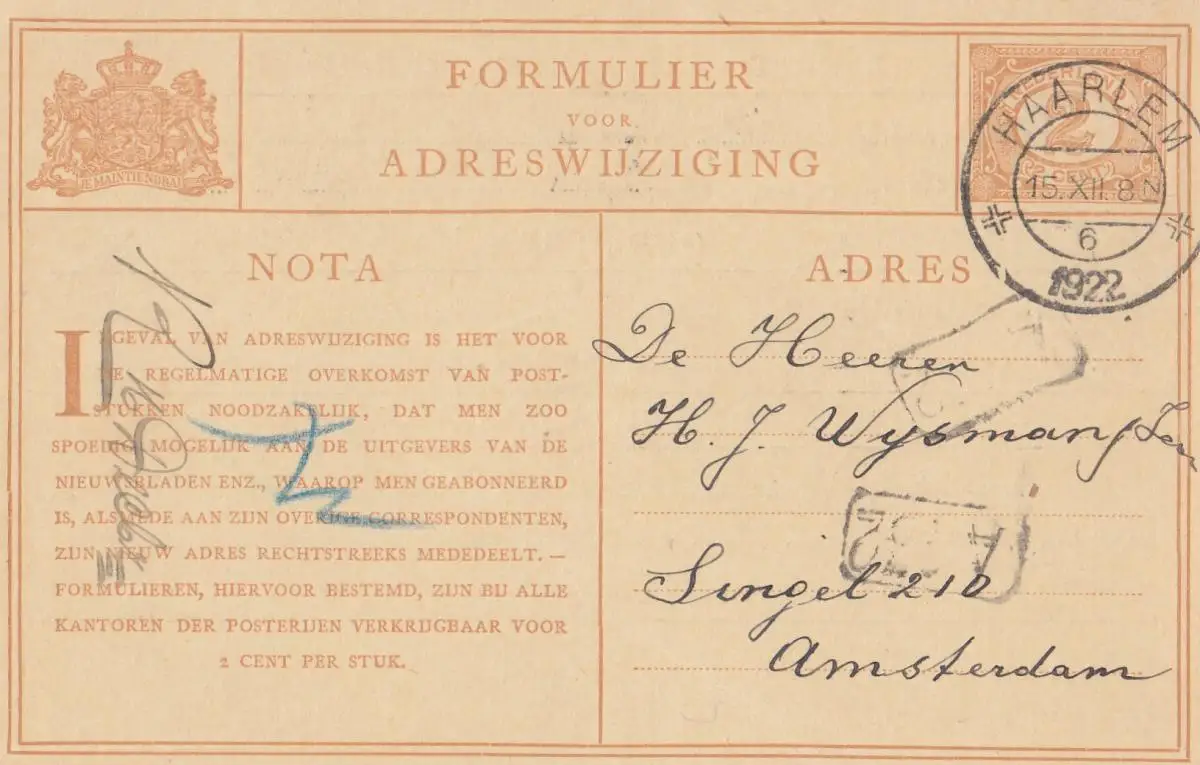 FORMULIER
VOOR
ADRESWIJZIGING
JE MAINTIENDRAI
NEDERLAND
HAARLEM
15.XII. 8
6
1922
NOTA
IN GEVAL VAN ADRESWIJZIGING IS HET VOOR
DE REGELMATIGE OVERKOMST VAN POST-
STUKKEN NOODZAKELIJK, DAT MEN ZOO
SPOEDIG MOGELIJK AAN DE UITGEVERS VAN DE
NIEUWSBLADEN ENZ., WAAROP MEN GEABONNEERD
IS, ALSMEDE AAN ZIJN OVERIGE CORRESPONDENTEN,
ZIJN NIEUW ADRES RECHTSTREEKS MEDEDEELT. —
FORMULIEREN, HIERVOOR BESTEMD, ZIJN BIJ ALLE
KANTOREN DER POSTERIJEN VERKRIJGBAAR VOOR
2 CENT PER STUK.
ADRES
De Heeren
H. J. Wysman
Singel 210
Amsterdam